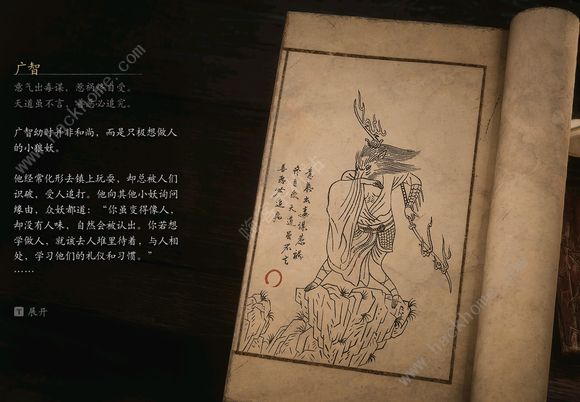 广智
意气出毒谋，惹祸终自受。
天道虽不言，善恶必追究。
广智幼时并非和尚，而是只极想做人
的小狼妖。
他经常化形去镇上玩耍，却总被人们
识破，受人追打。他向其他小妖询问
缘由，众妖都道：“你虽变得像人，
却没有人味，自然会被认出。你若想
学做人，就该去人堆里待着，与人相
处，学习他们的礼仪和习惯。”
……
T 展开
意气出毒谋惹祸
终自受天道虽不言
善恶必追究